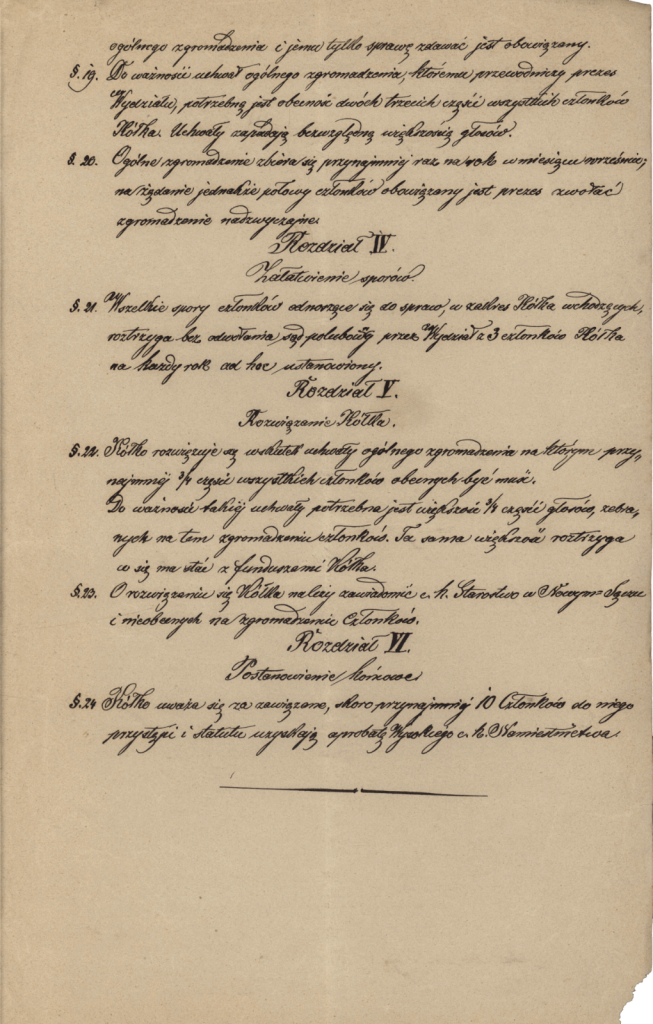 ogólnego zgromadzenia i jemu tylko sprawę zdawać jest obowiązany.
§. 19. Do ważności uchwał ogólnego zgromadzenia, któremu przewodniczy prezes
Wydziału, potrzebną jest obecność dwóch trzecich części wszystkich członków
Kółka. Uchwały zapadają bezwzględną większością głosów.
§. 20. Ogólne zgromadzenie zbiera się przynajmniej raz na rok w miesiącu wrześniu;
na żądanie jednakże połowy członków obowiązany jest prezes zwołać
zgromadzenie nadzwyczajne.
Rozdział IV.
Załatwienie sporów.
§. 21. Wszelkie spory członków odnoszące się do spraw, w zakres Kółka wchodzących,
roztrzyga bez odwołania sąd polubowy przez Wydział z 3 członków Kółka
na każdy rok ad hoc ustanowiony.
Rozdział V.
Rozwiązanie Kółka.
§. 22. Kółko rozwiązuje się wskutek uchwały ogólnego zgromadzenia na którym przy-
najmniej 3/4 część wszystkich członków obecnych być musi.
Do ważności takiej uchwały potrzebna jest większość 3/4 część głosów, zebra-
nych na tem zgromadzeniu członków. Ta sama większość roztrzyga
co się ma stać z funduszami Kółka.
§. 23. O rozwiązaniu się Kółka należy zawiadomić c. k. Starostwo w Nowym-Sączu
i nieobecnych na zgromadzeniu Członków.
Rozdział VI.
Postanowienie końcowe.
§. 24 Kółko uważa się za zawiązane, skoro przynajmniej 10 Członków do niego
przystąpi i statuta uzyskają aprobatę Wysokiego c. k. Namiestnictwa.